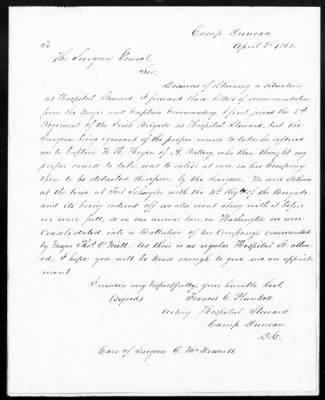 Camp Duncan
April 3d 1862.
To
The Surgeon General,
Sir.
Desirous of obtaining a situation
as Hospital Steward, I forward these letters of recommendation
from the Mayor and Captain Commanding. I first joined the 4th
Regiment of the Irish Brigade as Hospital Steward, but the
Surgeon being ignorant of the proper course to take he referred
me to Captain W. H. Hogan of "A" Battery, who then thought my
proper course to take was to enlist at once in his Company
then to be detached therefrom by the Surgeon. We were station
at the time at Fort Schuyler with the 4th Regt of the Brigade
and its being ordered off we also went along with it before
we were full, so on our arrival here in Washington we were
Consolidated into a Battalion of two Companys commanded
by Major Thos O'Neill. As there is no regular Hospital St. allow
ed, I hope you will be kind enough to give me an appoint
ment
I remain very respectfully, your humble Servt.
(signed) Francis C. Plunkett
Acting Hospital Steward
Camp Duncan
D.C.
Care of Surgeon C. McDonnell